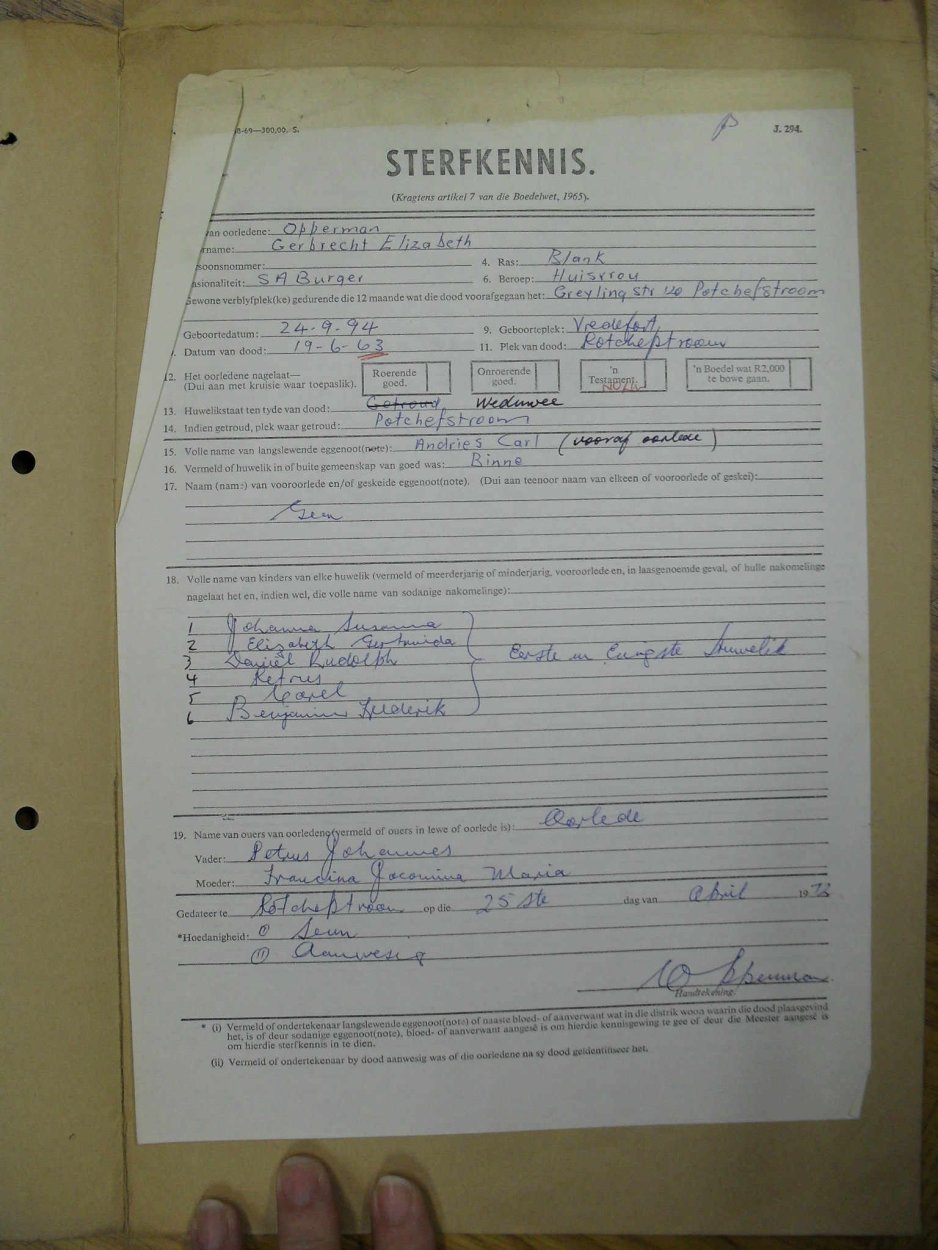 8-69—300,00. S.
J. 294.
STERFKENNIS.
(Kragtens artikel 7 van die Boedelwet, 1965).
van oorledene: Opperman
name: Gerbrecht Elizabeth
soonsnommer: 4. Ras: Blank
sionaliteit: SA Burger 6. Beroep: Huisvrou
Gewone verblyfplek(ke) gedurende die 12 maande wat die dood voorafgegaan het: Greyling str 120 Potchefstroom
Geboortedatum: 24-9-94 9. Geboorteplek: Vredefort
Datum van dood: 19-6-63 11. Plek van dood: Potchefstroom
12. Het oorledene nagelaat— Roerende Onroerende 'n 'n Boedel wat R2,000
(Dui aan met kruisie waar toepaslik). goed. goed. Testament. te bowe gaan.
13. Huwelikstaat ten tyde van dood: Getroud Weduwee
14. Indien getroud, plek waar getroud: Potchefstroom
15. Volle name van langslewende eggenoot(note): Andries Carl (vooraf oorlede)
16. Vermeld of huwelik in of buite gemeenskap van goed was: Binne
17. Naam (name) van vooroorlede en/of geskeide eggenoot(note). (Dui aan teenoor naam van elkeen of vooroorlede of geskei):
Geen
18. Volle name van kinders van elke huwelik (vermeld of meerderjarig of minderjarig, vooroorlede en, in laasgenoemde geval, of hulle nakomelinge
nagelaat het en, indien wel, die volle name van sodanige nakomelinge):
1 Johanna Susanna
2 Elizabeth Gertruida
3 Daniël Rudolph Eerste en Enigste Huwelik
4 Petrus
5 Carel
6 Benjamin Frederik
19. Name van ouers van oorledene (vermeld of ouers in lewe of oorlede is): Oorlede
Vader: Petrus Johannes
Moeder: Francina Jacomina Maria
Gedateer te Potchefstroom op die 25ste dag van April 1973
*Hoedanigheid: (i) Seun
(ii) Aanwesig
Opperman
Handtekening.
* (i) Vermeld of ondertekenaar langslewende eggenoot(note) of naaste bloed- of aanverwant wat in die distrik woon waarin die dood plaasgevind
het, is of deur sodanige eggenoot(note), bloed- of aanverwant aangesê is om hierdie kennisgewing te gee of deur die Meester aangesê is
om hierdie sterfkennis in te dien.
(ii) Vermeld of ondertekenaar by dood aanwesig was of die oorledene na sy dood geïdentifiseer het.